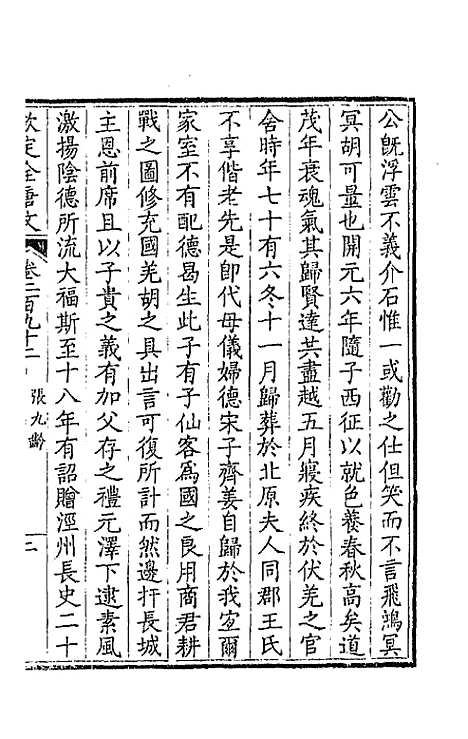 公既浮雲不義介石惟一或勸之仕但笑而不言飛鴻冥
冥胡可量也開元六年隨子西征以就色養春秋高矣道
茂年衰魂氣其歸賢達共盡越五月寢疾終於伏羌之官
舍時年七十有六冬十一月歸葬於北原夫人同郡王氏
不享偕老先是卽代母儀婦德宋子齊姜自歸於我宜爾
家室不有配德曷生此子有子仙客爲國之良用商君耕
戰之圖修充國羌胡之具出言可復所計而然邊扞長城
主恩前席且以子貴之義有加父存之禮元澤下逮素風
激揚陰德所流大福斯至十八年有詔贈涇州長史二十
欽定全唐文
卷二百九十二
張九齡
二